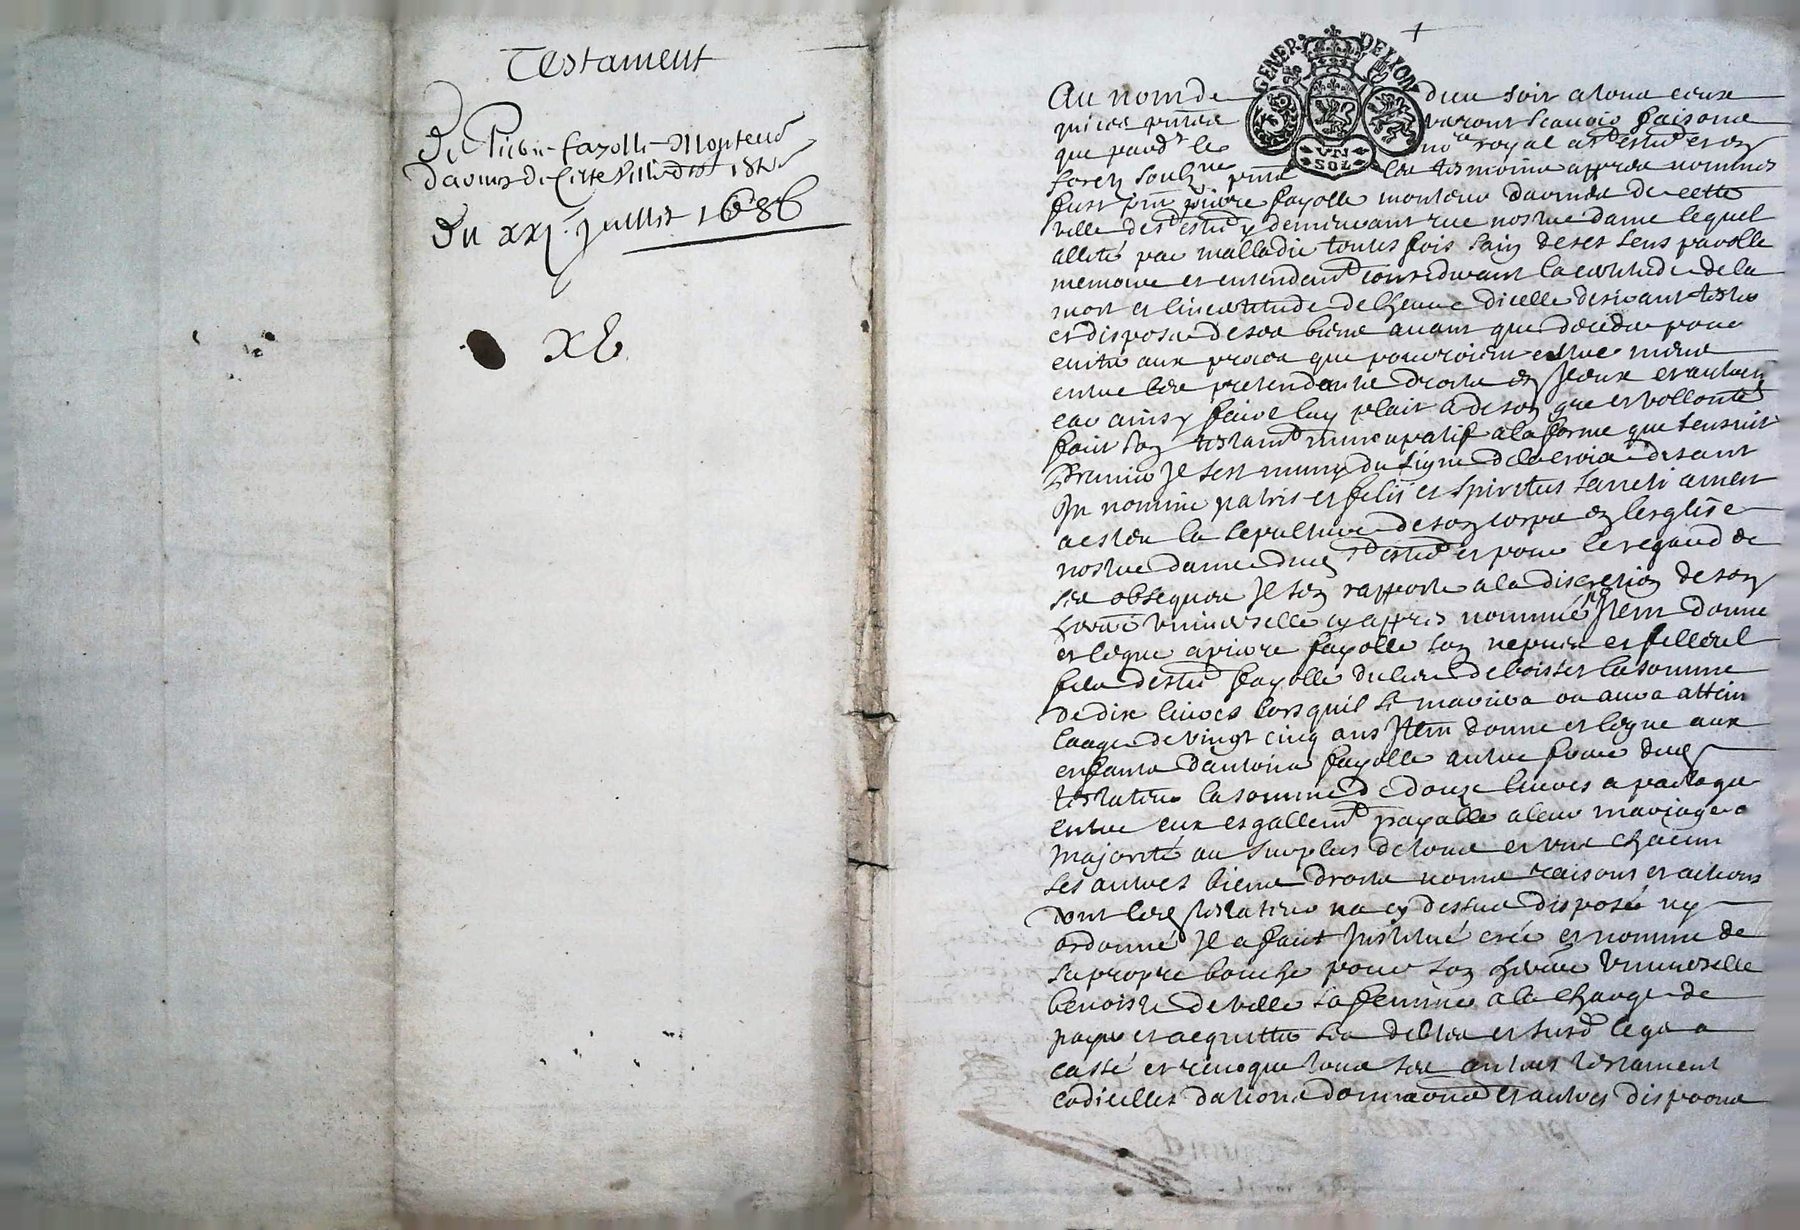 Testament
De Pierre fayolle Monteur
davines de cette ville de St Estienne
Du xxj. Juillet 1686
XE
GENER. DE LYON
VN SOL
Au nom de dieu soit a tous ceux
qui ces pntes verront scauoir faisons
que pardt le nore royal a St Estne en
forest soubzne pnts les tesmoins appres nommes
fust pnt pierre fayolle monteur darmes de cette
ville de St Estne y demeurant rue nostre dame lequel
allité par malladie toutes fois sain de ses sens parolle
memoire et entendemt considerant la certitude de la
mort et lincertitude de lheure dicelle desirant tester
et disposer de ses biens auant que deceder pour
euiter aux proces que pourroient estre meus
entre les pretendants droits en Iceux et autremt
car ainsy faire luy plait a de son gre et vollonté
fait son testamt nuncupatif a la forme que sensuit
Premier Il sest muny du signe de la croix disant
In nomine patris et filii et spiritus sancti amen
a esleu la sepulture de son corps en lesglise
nostre dame dud St Estne et pour le regard de
ses obseques Il sen rapporte a la discretion de son
heretre vniuerselle cy appres nommée Item donne
et legue a pierre fayolle son nepueu et filleul
fils destne fayolle du lieu de boisset la somme
de dix liures lorsquil se mariera ou aura attein
laage de vingt cinq ans Item donne et legue aux
enfants dantoine fayolle autre frere dud
testateur la somme de douze liures a partager
entre eux esgallemt payable a leur mariage o
majorité au surplus de tous et vns chacun
ses autres biens droits noms raisons et actions
dont led testateur na cy dessus disposé ny
ordonné Il a fait Institué creé et nomme de
sa propre bouche pour son heretre vniuerselle
benoiste deville sa femme a la charge de
payer et acquitter ses debtes et susd legs a
cassé et reuoque tous ses autres testament
codicilles dations donnaons et autres disposons